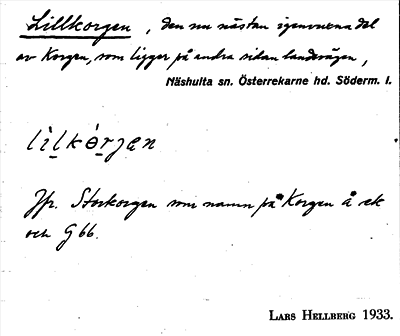 Lillkorgen, den nu nästan igenvuxna del
av Korgen, som ligger på andra sidan landsvägen,
Näshulta sn. Österrekarne hd. Söderm. l.
lìlkórjen
Jfr. Storkorgen som namn på Korgen å ek
och Gbb.
LARS HELLBERG 1933.